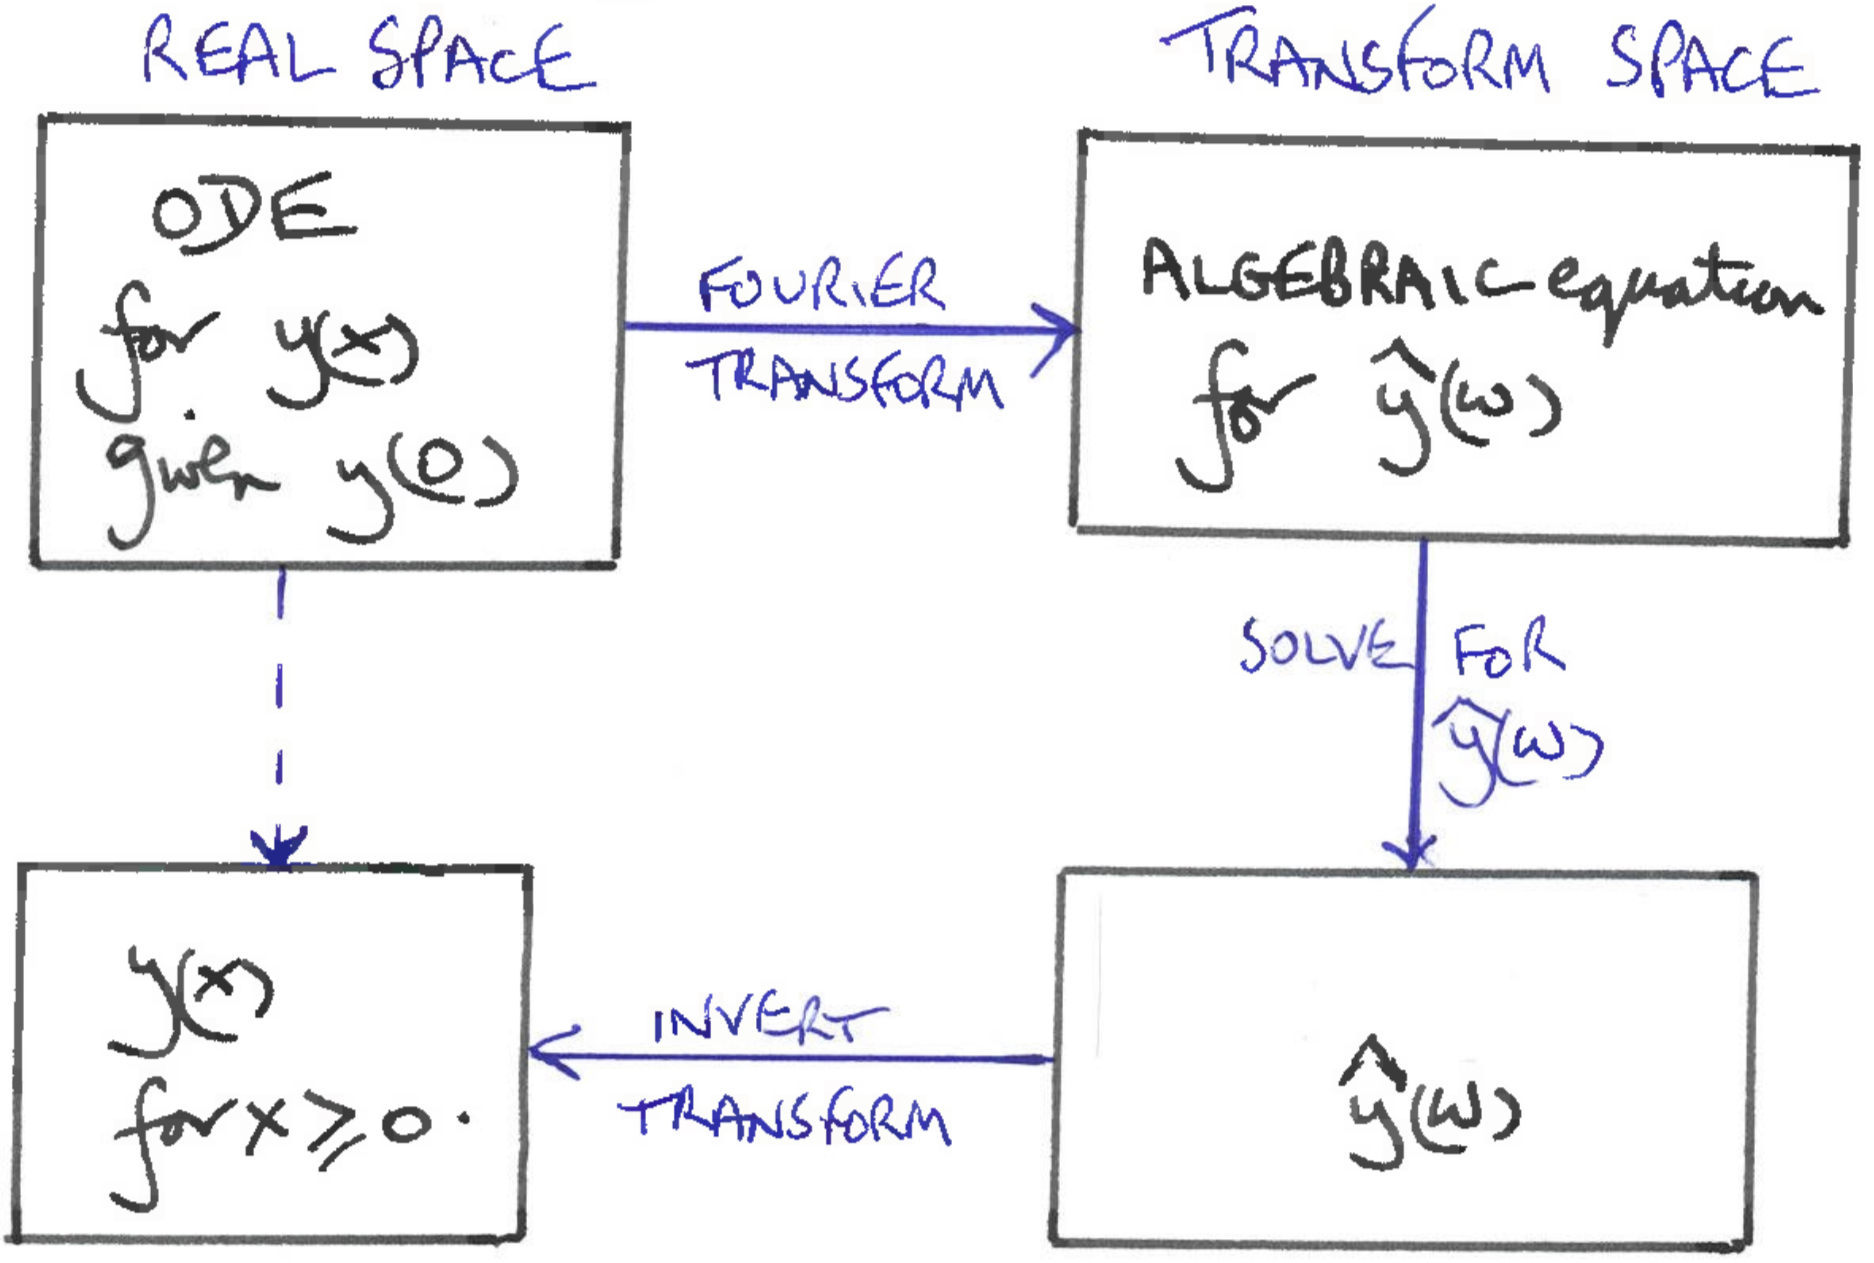 REAL SPACE
TRANSFORM SPACE
ODE
for y(x)
given y(0)
FOURIER
TRANSFORM
ALGEBRAIC equation
for ŷ(ω)
SOLVE FOR
ŷ(ω)
y(x)
for x ⩾ 0.
INVERT
TRANSFORM
ŷ(ω)